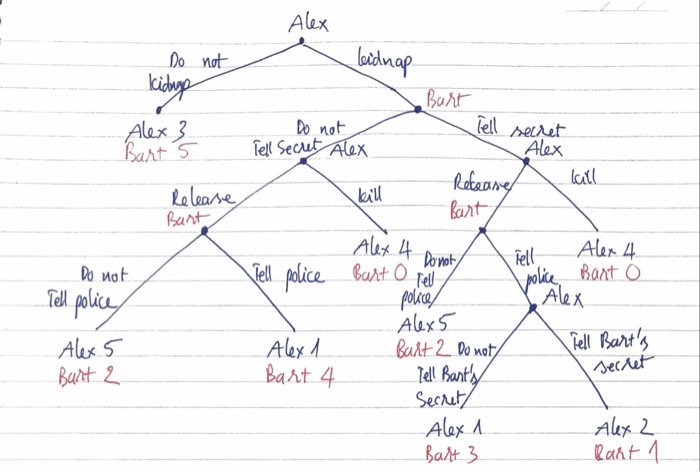 Alex
Do not
kidnap
kidnap
Bart
Alex 3
Bart 5
Do not
Tell Secret
Alex
Tell secret
Alex
Release
Bart
kill
Release
Bart
kill
Alex 4
Bart 0
Alex 4
Bart 0
Do not
Tell police
Tell police
Do not
Tell
police
Tell
police
Alex
Alex 5
Bart 2
Alex 1
Bart 4
Alex 5
Bart 2
Do not
Tell Bart's
Secret
Tell Bart's
secret
Alex 1
Bart 3
Alex 2
Bart 1